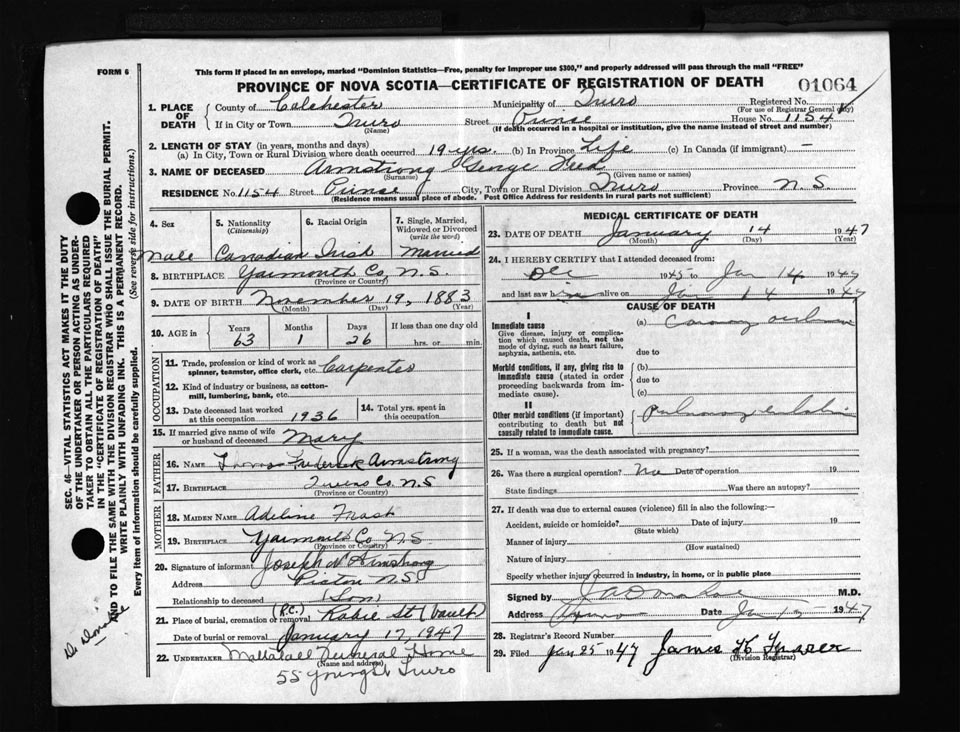 FORM 6
This form if placed in an envelope, marked "Dominion Statistics—Free, penalty for improper use $300," and properly addressed will pass through the mail "FREE"
PROVINCE OF NOVA SCOTIA—CERTIFICATE OF REGISTRATION OF DEATH
01064
1. PLACE OF DEATH
County of Colchester Municipality of Truro Registered No.
(For use of Registrar General only)
If in City or Town Truro Street Prince House No. 1154
(Name) (If death occurred in a hospital or institution, give the name instead of street and number)
2. LENGTH OF STAY (in years, months and days)
(a) In City, Town or Rural Division where death occurred 19 yrs. (b) In Province Life (c) In Canada (if immigrant) —
3. NAME OF DECEASED Armstrong George Fred
(Surname) (Given name or names)
RESIDENCE No. 1154 Street Prince City, Town or Rural Division Truro Province N.S.
(Residence means usual place of abode. Post Office Address for residents in rural parts not sufficient)
4. Sex
Male
5. Nationality
(Citizenship)
Canadian
6. Racial Origin
Irish
7. Single, Married, Widowed or Divorced
(write the word)
Married
8. BIRTHPLACE Yarmouth Co. N.S.
(Province or Country)
9. DATE OF BIRTH November 19, 1883
(Month) (Day) (Year)
10. AGE in
Years Months Days If less than one day old
63 1 26 hrs. or min.
OCCUPATION
11. Trade, profession or kind of work as spinner, teamster, office clerk, etc. Carpenter
12. Kind of industry or business, as cotton-mill, lumbering, bank, etc.
13. Date deceased last worked at this occupation 1936
14. Total yrs. spent in this occupation
15. If married give name of wife or husband of deceased Mary
FATHER
16. NAME Thomas Frederick Armstrong
17. BIRTHPLACE Queens Co. N.S
(Province or Country)
MOTHER
18. MAIDEN NAME Adeline Frost
19. BIRTHPLACE Yarmouth Co N.S.
(Province or Country)
20. Signature of informant Joseph W Armstrong
Address Pictou N.S
Relationship to deceased (Son)
21. Place of burial, cremation or removal (R.C.) Robie St (Vault)
Date of burial or removal January 17, 1947
22. UNDERTAKER Mattatall Funeral Home
(Name and address)
55 Young St Truro
MEDICAL CERTIFICATE OF DEATH
23. DATE OF DEATH January 14 1947
(Month) (Day) (Year)
24. I HEREBY CERTIFY that I attended deceased from:
Dec 1945 to Jan 14 1947
and last saw him alive on Jan 14 1947
CAUSE OF DEATH
I
Immediate cause
Give disease, injury or complication which caused death, not the mode of dying, such as heart failure, asphyxia, asthenia, etc.
(a) Coronary
due to
Morbid conditions, if any, giving rise to immediate cause (stated in order proceeding backwards from immediate cause).
(b)
due to
(c)
II
Other morbid conditions (if important) contributing to death but not causally related to immediate cause.
Pulmonary
25. If a woman, was the death associated with pregnancy?
26. Was there a surgical operation? No Date of operation 19
State findings Was there an autopsy?
27. If death was due to external causes (violence) fill in also the following:—
Accident, suicide or homicide? Date of injury 19
(State which)
Manner of injury
(How sustained)
Nature of injury
Specify whether injury occurred in industry, in home, or in public place
Signed by M.D.
Address Truro Date Jan 1947
28. Registrar's Record Number
29. Filed Jan 25 1947 James H Fraser
(Division Registrar)
SEC. 46—VITAL STATISTICS ACT MAKES IT THE DUTY
OF THE UNDERTAKER OR PERSON ACTING AS UNDER-
TAKER TO OBTAIN ALL THE PARTICULARS REQUIRED
IN THE "CERTIFICATE OF REGISTRATION OF DEATH"
AND TO FILE THE SAME WITH THE DIVISION REGISTRAR WHO SHALL ISSUE THE BURIAL PERMIT.
WRITE PLAINLY WITH UNFADING INK. THIS IS A PERMANENT RECORD.
Every item of information should be carefully supplied. (See reverse side for instructions.)